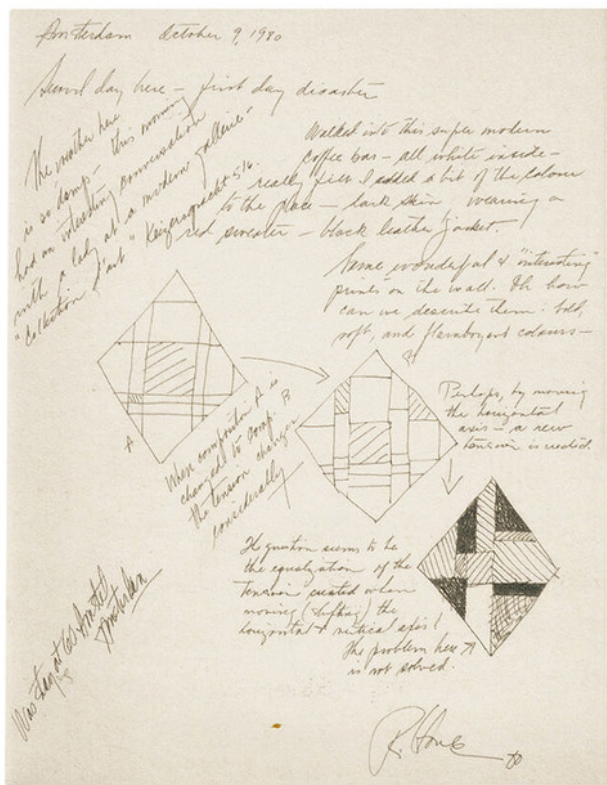 Amsterdam October 9, 1980
Second day here – first day disaster
The weather here
is so damp – this morning
had an interesting conversation
with a lady at a modern gallerie –
"Collection d'art" Keizersgracht 516.
Walked into this super modern
coffee bar – all white inside –
really felt I added a bit of the colour
to the place – dark skin, wearing a
red sweater – black leather jacket.
Some wonderful & "interesting"
prints on the wall. Oh how
can we describe them: bold,
soft, and flamboyant colours –
A
When composition A is
changed to Comp. B
the tension changes
considerably
B
Perhaps, by moving
the horizontal
axis – a new
tension is created.
The question seems to be
the equalization of the
tension created when
moving (shifting) the
horizontal & vertical axis!
The problem here
is not solved.
Was stay at 60 Amstel
Amsterdam
80